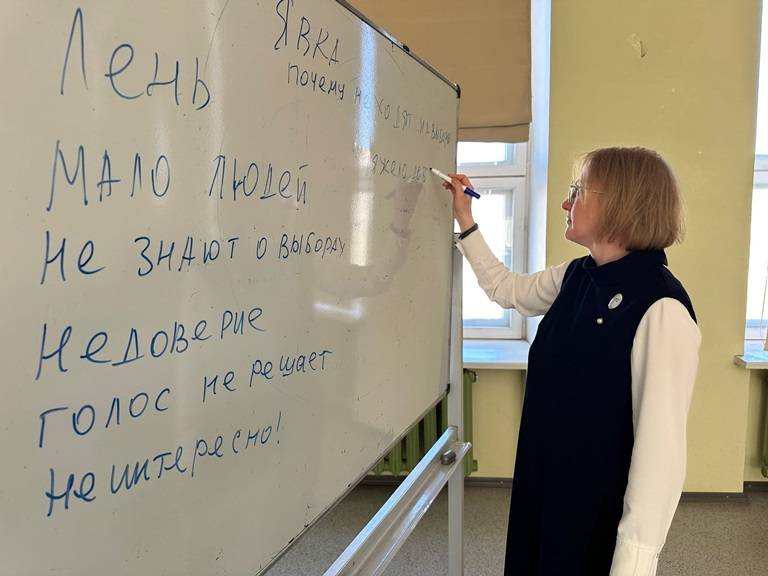 Явка
почему не ходят на выборы
Лень
Мало людей
Не знают о выборах
Недоверие
голос не решает
Неинтересно!